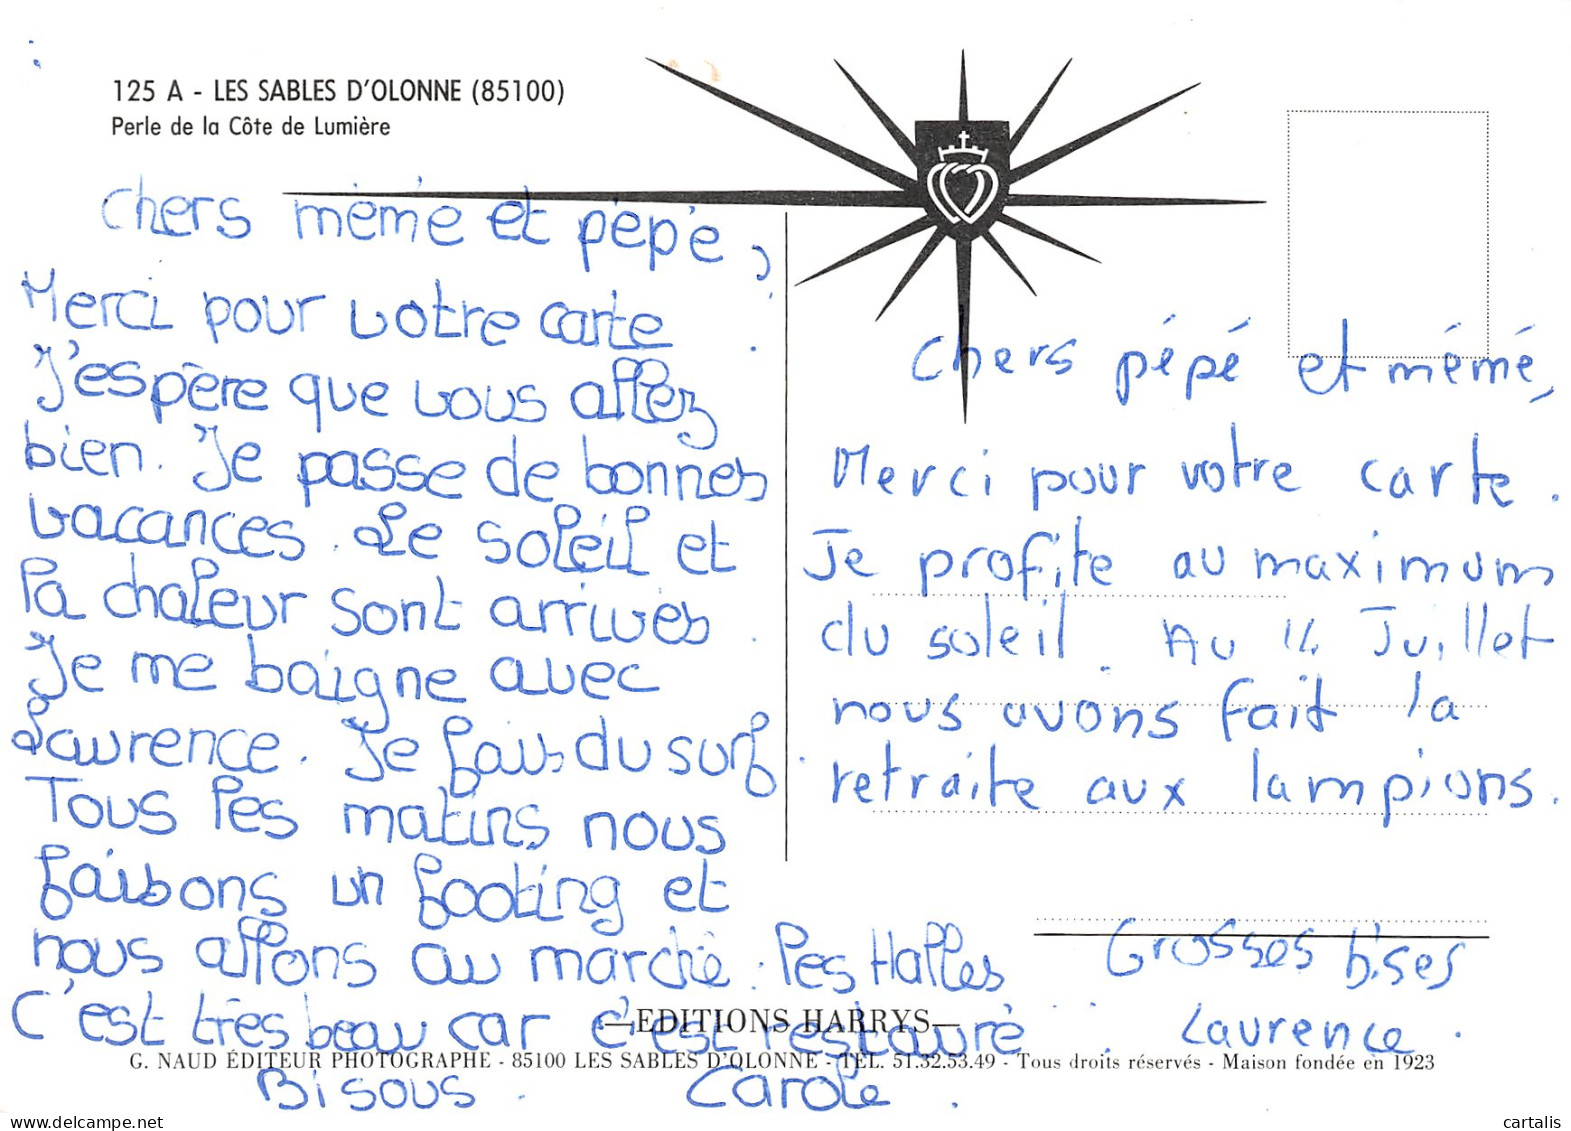 125 A - LES SABLES D'OLONNE (85100)
Perle de la Côte de Lumière
Chers mémé et pépé,
Merci pour votre carte.
J'espère que vous allez
bien. Je passe de bonnes
vacances. Le soleil et
la chaleur sont arrivés.
Je me baigne avec
Laurence. Je fais du surf.
Tous les matins nous
faisons un footing et
nous allons au marché : les Halles
C'est très beau car c'est restauré.
Bisous. Carole.
Chers pépé et mémé,
Merci pour votre carte.
Je profite au maximum
du soleil. Au 14 Juillet
nous avons fait la
retraite aux lampions.
Grosses bises
Laurence.
—EDITIONS HARRYS—
G. NAUD ÉDITEUR PHOTOGRAPHE - 85100 LES SABLES D'OLONNE - TÉL. 51.32.53.49 - Tous droits réservés - Maison fondée en 1923
delcampe.net
cartalis